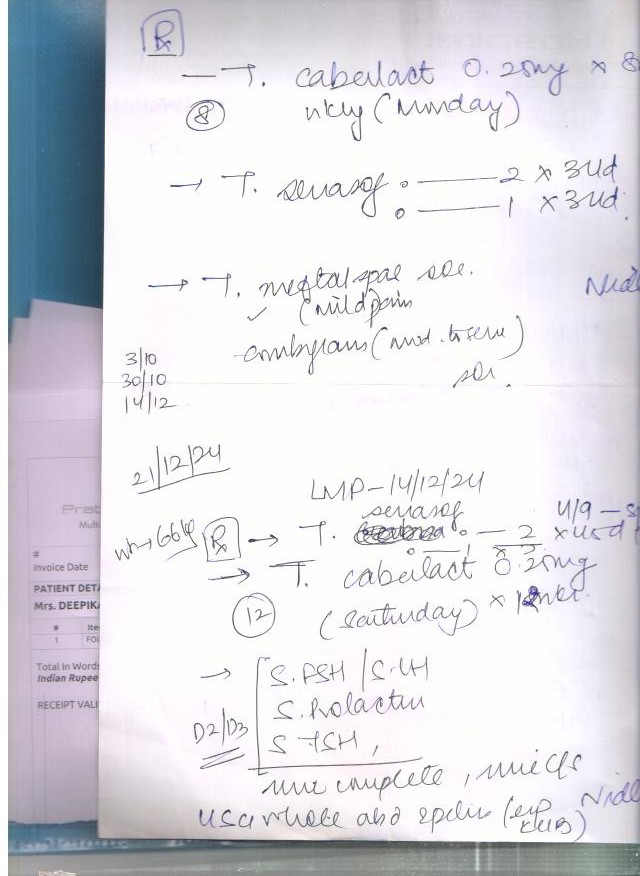 Rx
— T. caberlact 0.25mg x 8
8 wkly (Monday)
→ T. senasof o — 2 x 3
o — 1 x 3
→ T. meftal spas sos.
(mild pain
combiflam (mod. to severe)
sos.
3/10
30/10
14/12
21/12/24
LMP-14/12/24
senasof
4/9 –
wt → 66kg Rx → T. o — 2
→ T. caberlact 0.25mg
12 (saturday) x 12
→ S. FSH / S. LH
S. Prolactin
D2/D3
S TSH,
urine complete, urine c/s
USG whole abd & pelvis (esp KUB)
Prat
Mult
#
Invoice Date
PATIENT DETA
Mrs. DEEPIKA
# Ite
1 FOL
Total In Words
Indian Rupee
RECEIPT VALI